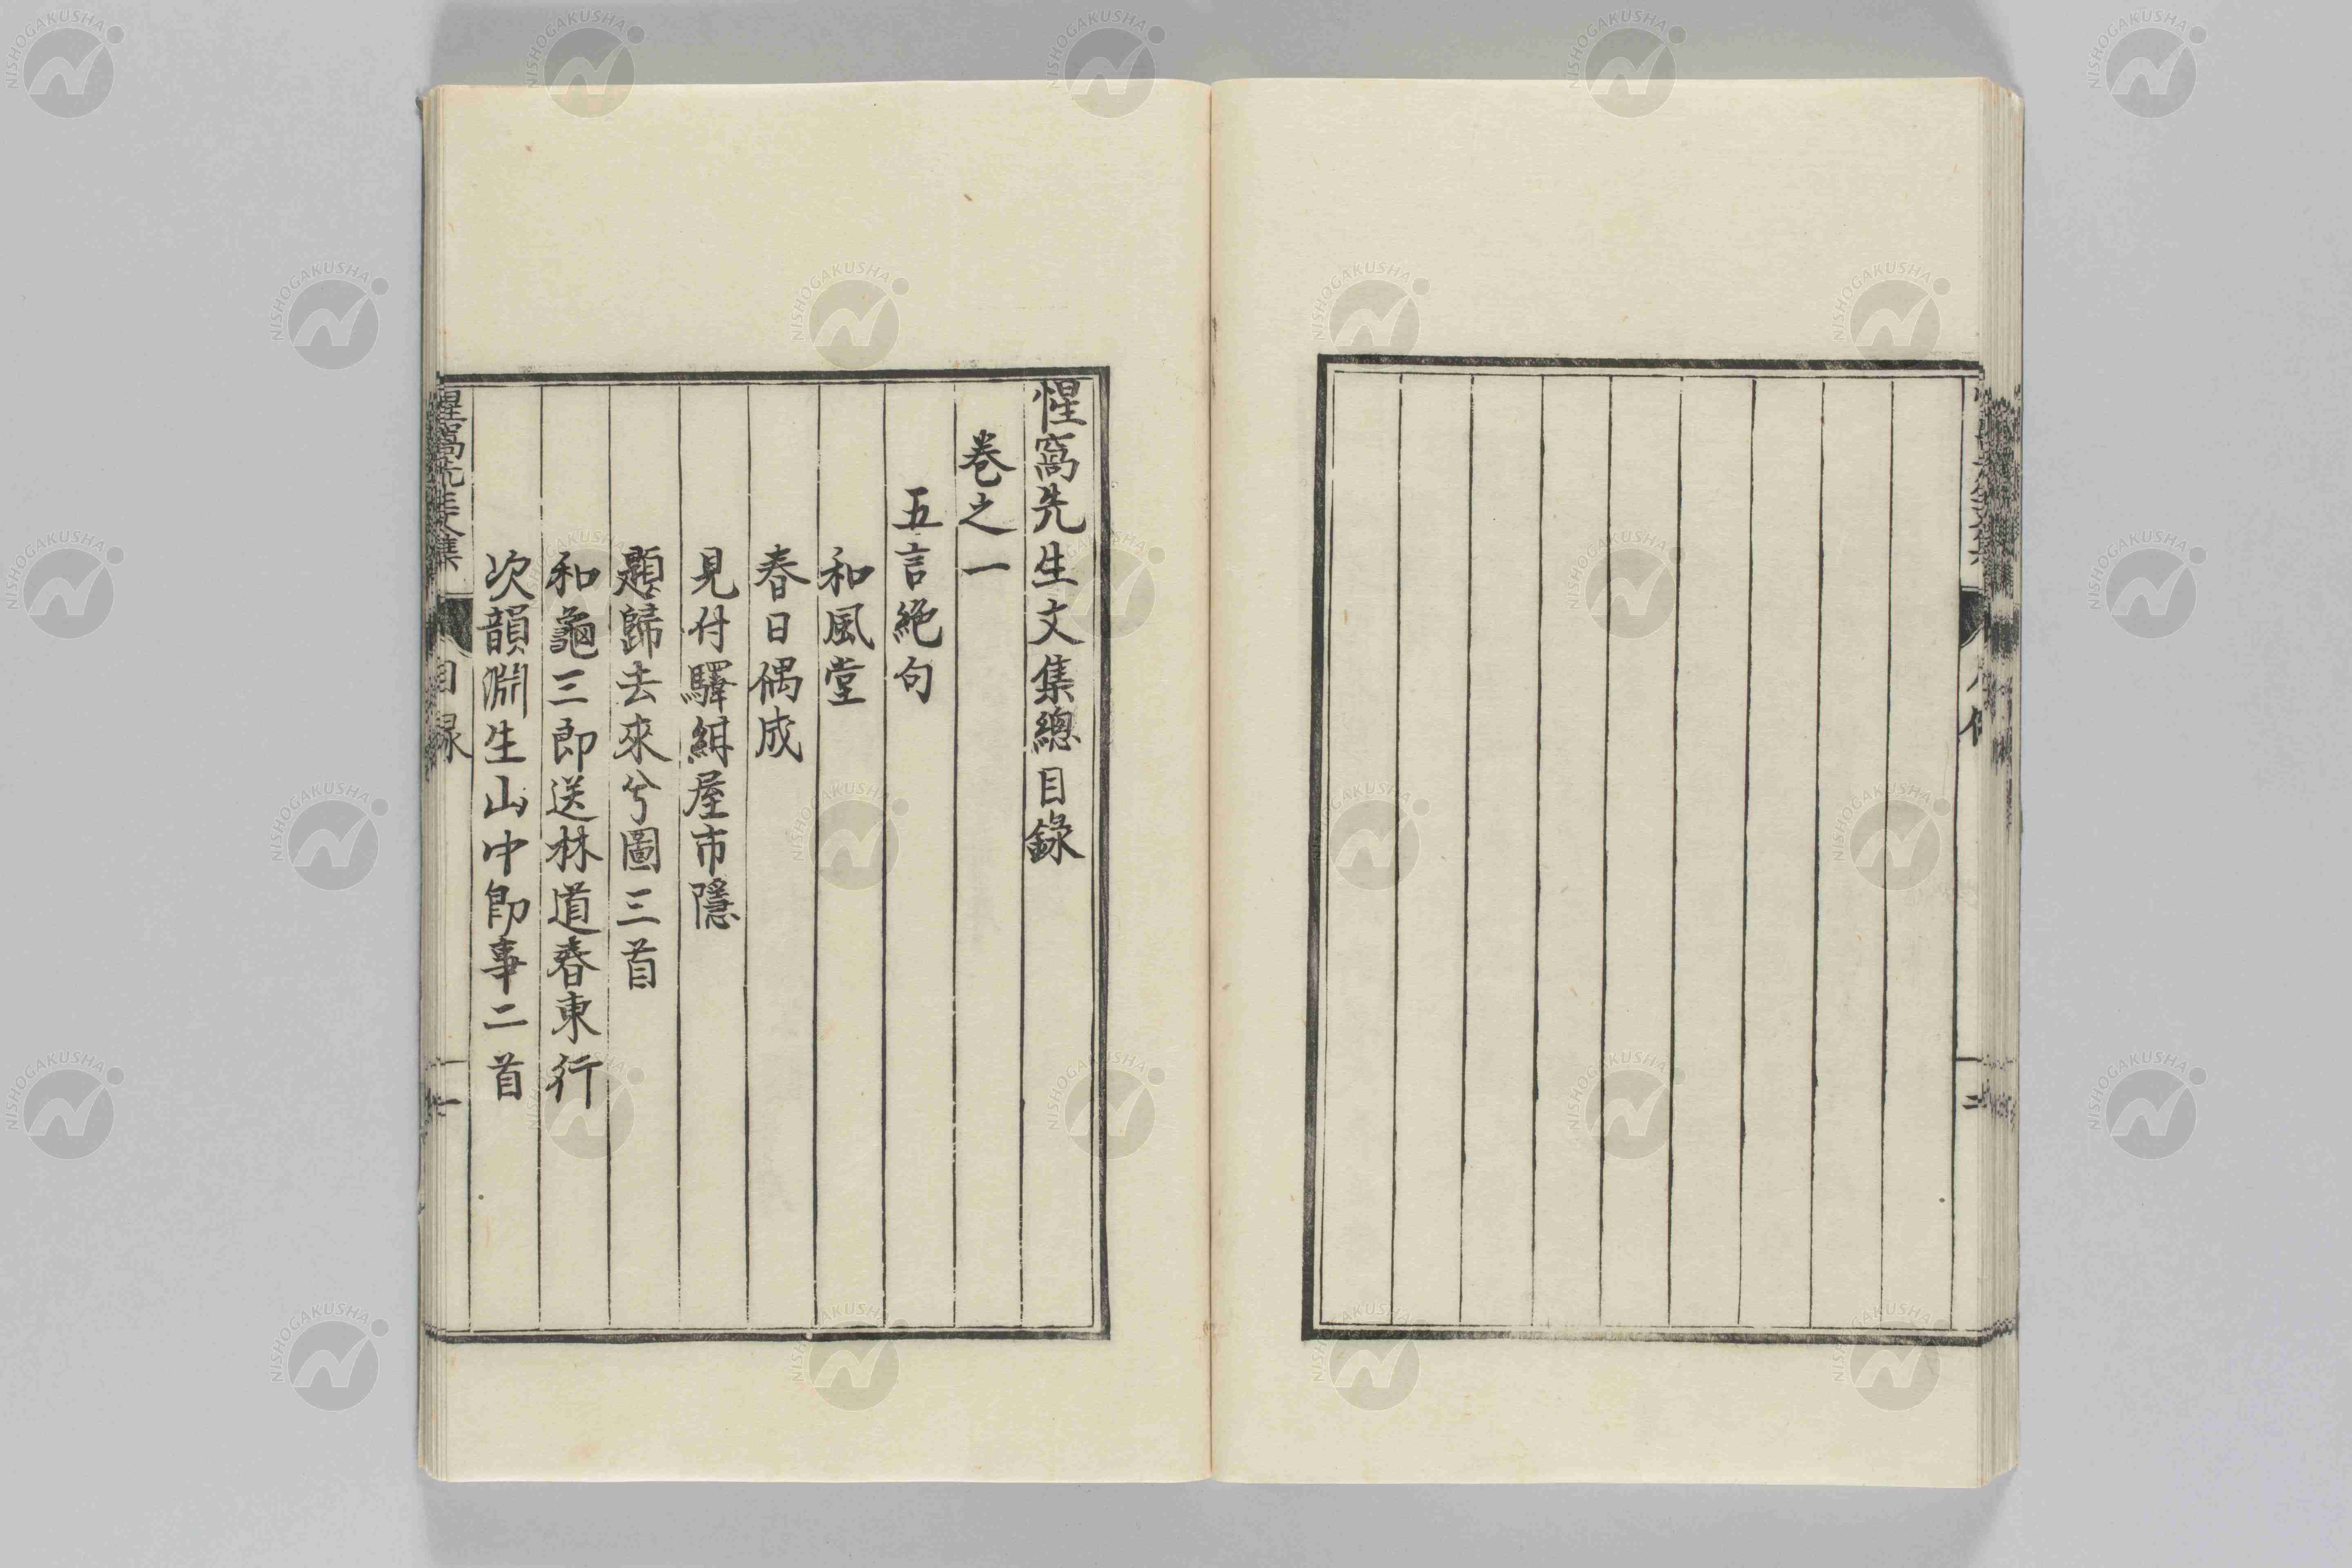 惺窩先生文集總目錄
卷之一
五言絕句
和風堂
春日偶成
見付驛紺屋市隱
題歸去來兮圖三首
和龜三郎送林道春東行
次韻淵生山中即事二首
惺窩先生文集 目錄 一
NISHOGAKUSHA